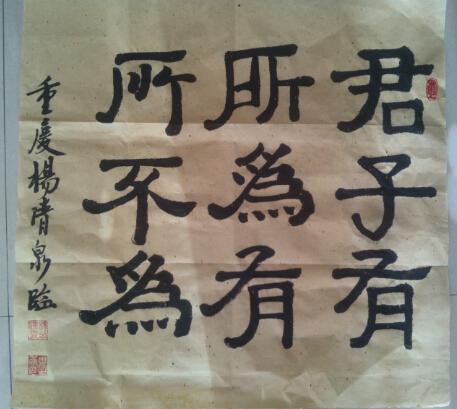 君子有
所為有
所不為
重慶楊清泉臨